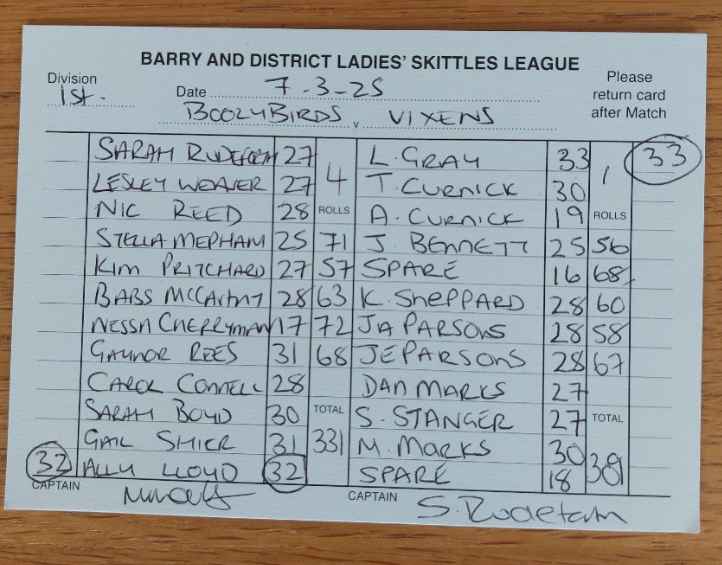 BARRY AND DISTRICT LADIES' SKITTLES LEAGUE
Division 1st.
Date 7-3-25
Please return card after Match
BOOZYBIRDS v VIXENS
SARAH 27 4 L. GRAY 33 1 33
LESLEY WEAVER 27 T. CURNICK 30
NIC REED 28 ROLLS A. CURNICK 19 ROLLS
STELLA MEPHAM 25 71 J. BENNETT 25 56
KIM PRITCHARD 27 57 SPARE 16 68
BABS MCCARTHY 28 63 K. SHEPPARD 28 60
NESSA CHERRYMAN 17 72 JA PARSONS 28 58
GAYNOR REES 31 68 JE PARSONS 28 67
CAROL CONNELL 28 DAN MARKS 27
SARAH BOYD 30 TOTAL S. STANGER 27 TOTAL
GAIL SHIER 31 331 M. MARKS 30
32 ALLY LLOYD 32 SPARE 18
CAPTAIN CAPTAIN S.